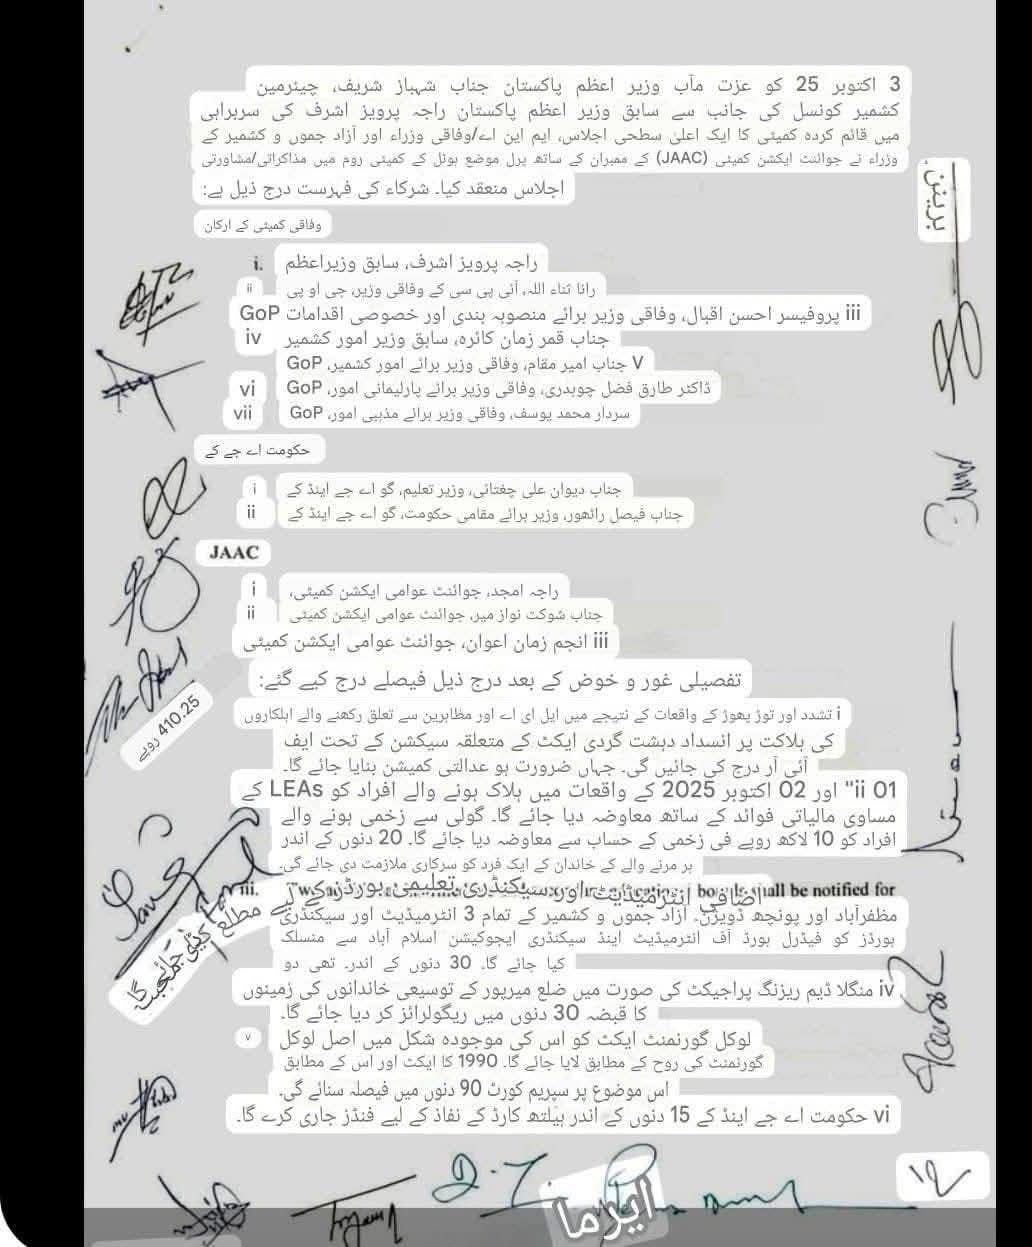 3 اکتوبر 25 کو عزت مآب وزیر اعظم پاکستان جناب شہباز شریف، چیئرمین
کشمیر کونسل کی جانب سے سابق وزیر اعظم پاکستان راجہ پرویز اشرف کی سربراہی
میں قائم کردہ کمیٹی کا ایک اعلیٰ سطحی اجلاس، ایم این اے/وفاقی وزراء اور آزاد جموں و کشمیر کے
وزراء نے جوائنٹ ایکشن کمیٹی (JAAC) کے ممبران کے ساتھ پرل موضع ہوٹل کے کمیٹی روم میں مذاکراتی/مشاورتی
اجلاس منعقد کیا۔ شرکاء کی فہرست درج ذیل ہے:
وفاقی کمیٹی کے ارکان
i. راجہ پرویز اشرف، سابق وزیراعظم
ii رانا ثناء اللہ، آئی پی سی کے وفاقی وزیر، جی او پی
iii پروفیسر احسن اقبال، وفاقی وزیر برائے منصوبہ بندی اور خصوصی اقدامات GoP
iv جناب قمر زمان کائرہ، سابق وزیر امور کشمیر
V جناب امیر مقام، وفاقی وزیر برائے امور کشمیر، GoP
vi ڈاکٹر طارق فضل چوہدری، وفاقی وزیر برائے پارلیمانی امور، GoP
vii سردار محمد یوسف، وفاقی وزیر برائے مذہبی امور، GoP
حکومت اے جے کے
i جناب دیوان علی چغتائی، وزیر تعلیم، گو اے جے اینڈ کے
ii جناب فیصل راٹھور، وزیر برائے مقامی حکومت، گو اے جے اینڈ کے
JAAC
i راجہ امجد، جوائنٹ عوامی ایکشن کمیٹی،
ii جناب شوکت نواز میر، جوائنٹ عوامی ایکشن کمیٹی
iii انجم زمان اعوان، جوائنٹ عوامی ایکشن کمیٹی
تفصیلی غور و خوض کے بعد درج ذیل فیصلے درج کیے گئے:
i تشدد اور توڑ پھوڑ کے واقعات کے نتیجے میں ایل ای اے اور مظاہرین سے تعلق رکھنے والے اہلکاروں
کی ہلاکت پر انسداد دہشت گردی ایکٹ کے متعلقہ سیکشن کے تحت ایف
آئی آر درج کی جائیں گی۔ جہاں ضرورت ہو عدالتی کمیشن بنایا جائے گا۔
ii" 01 اور 02 اکتوبر 2025 کے واقعات میں ہلاک ہونے والے افراد کو LEAs کے
مساوی مالیاتی فوائد کے ساتھ معاوضہ دیا جائے گا۔ گولی سے زخمی ہونے والے
افراد کو 10 لاکھ روپے فی زخمی کے حساب سے معاوضہ دیا جائے گا۔ 20 دنوں کے اندر
ہر مرنے والے کے خاندان کے ایک فرد کو سرکاری ملازمت دی جائے گی۔
iii. اضافی انٹرمیڈیٹ اور سیکنڈری تعلیمی بورڈز کے لیے مطلع کیا جائے گا shall be notified for
مظفرآباد اور پونچھ ڈویژن۔ آزاد جموں و کشمیر کے تمام 3 انٹرمیڈیٹ اور سیکنڈری
بورڈز کو فیڈرل بورڈ آف انٹرمیڈیٹ اینڈ سیکنڈری ایجوکیشن اسلام آباد سے منسلک
کیا جائے گا۔ 30 دنوں کے اندر۔ تھی دو
iv منگلا ڈیم ریزنگ پراجیکٹ کی صورت میں ضلع میرپور کے توسیعی خاندانوں کی زمینوں
کا قبضہ 30 دنوں میں ریگولرائز کر دیا جائے گا۔
v لوکل گورنمنٹ ایکٹ کو اس کی موجودہ شکل میں اصل لوکل
گورنمنٹ کی روح کے مطابق لایا جائے گا۔ 1990 کا ایکٹ اور اس کے مطابق
اس موضوع پر سپریم کورٹ 90 دنوں میں فیصلہ سنائے گی۔
vi حکومت اے جے اینڈ کے 15 دنوں کے اندر ہیلتھ کارڈ کے نفاذ کے لیے فنڈز جاری کرے گا۔
410.25 روپے
بریٹن.
ایرما